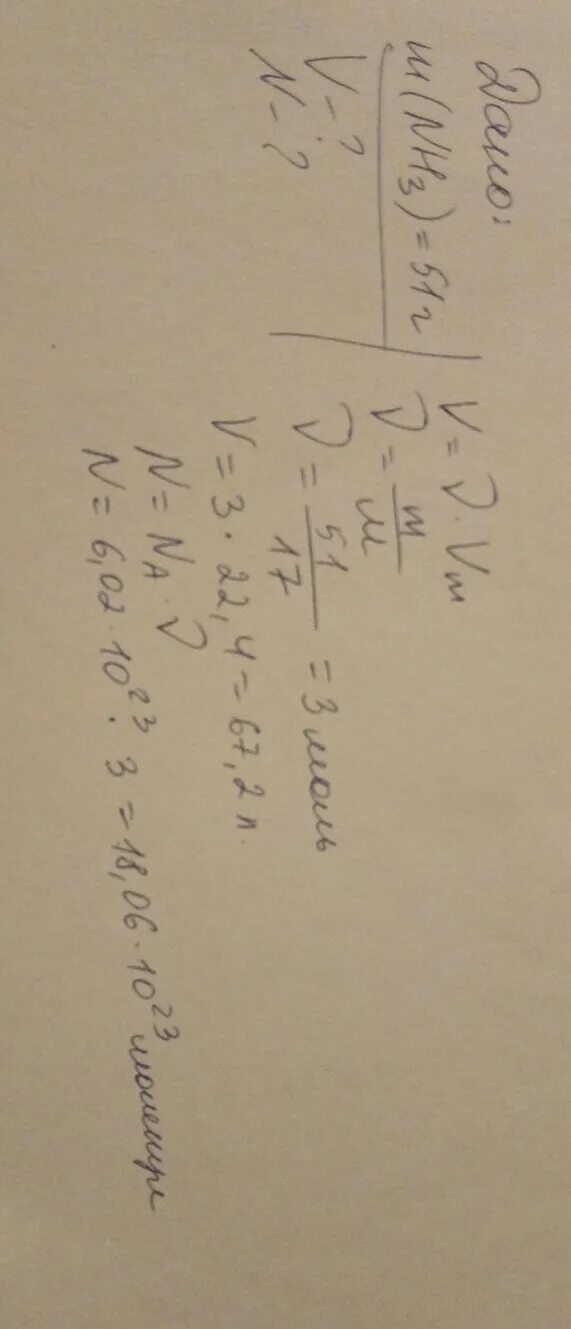 Дано:
m(NH3)=51г
V-?
N-?
V=ν·Vm
ν=m/M
ν=51/17=3 моль
V=3·22,4=67,2 л.
N=NA·ν
N=6,02·10^23·3=18,06·10^23 молекул